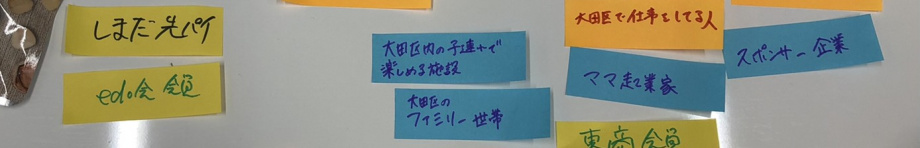 しまだ先パイ
edo会 会員
大田区内の子連れで
楽しめる施設
大田区の
ファミリー世帯
大田区で仕事をしてる人
ママ起業家
スポンサー企業
東商会員